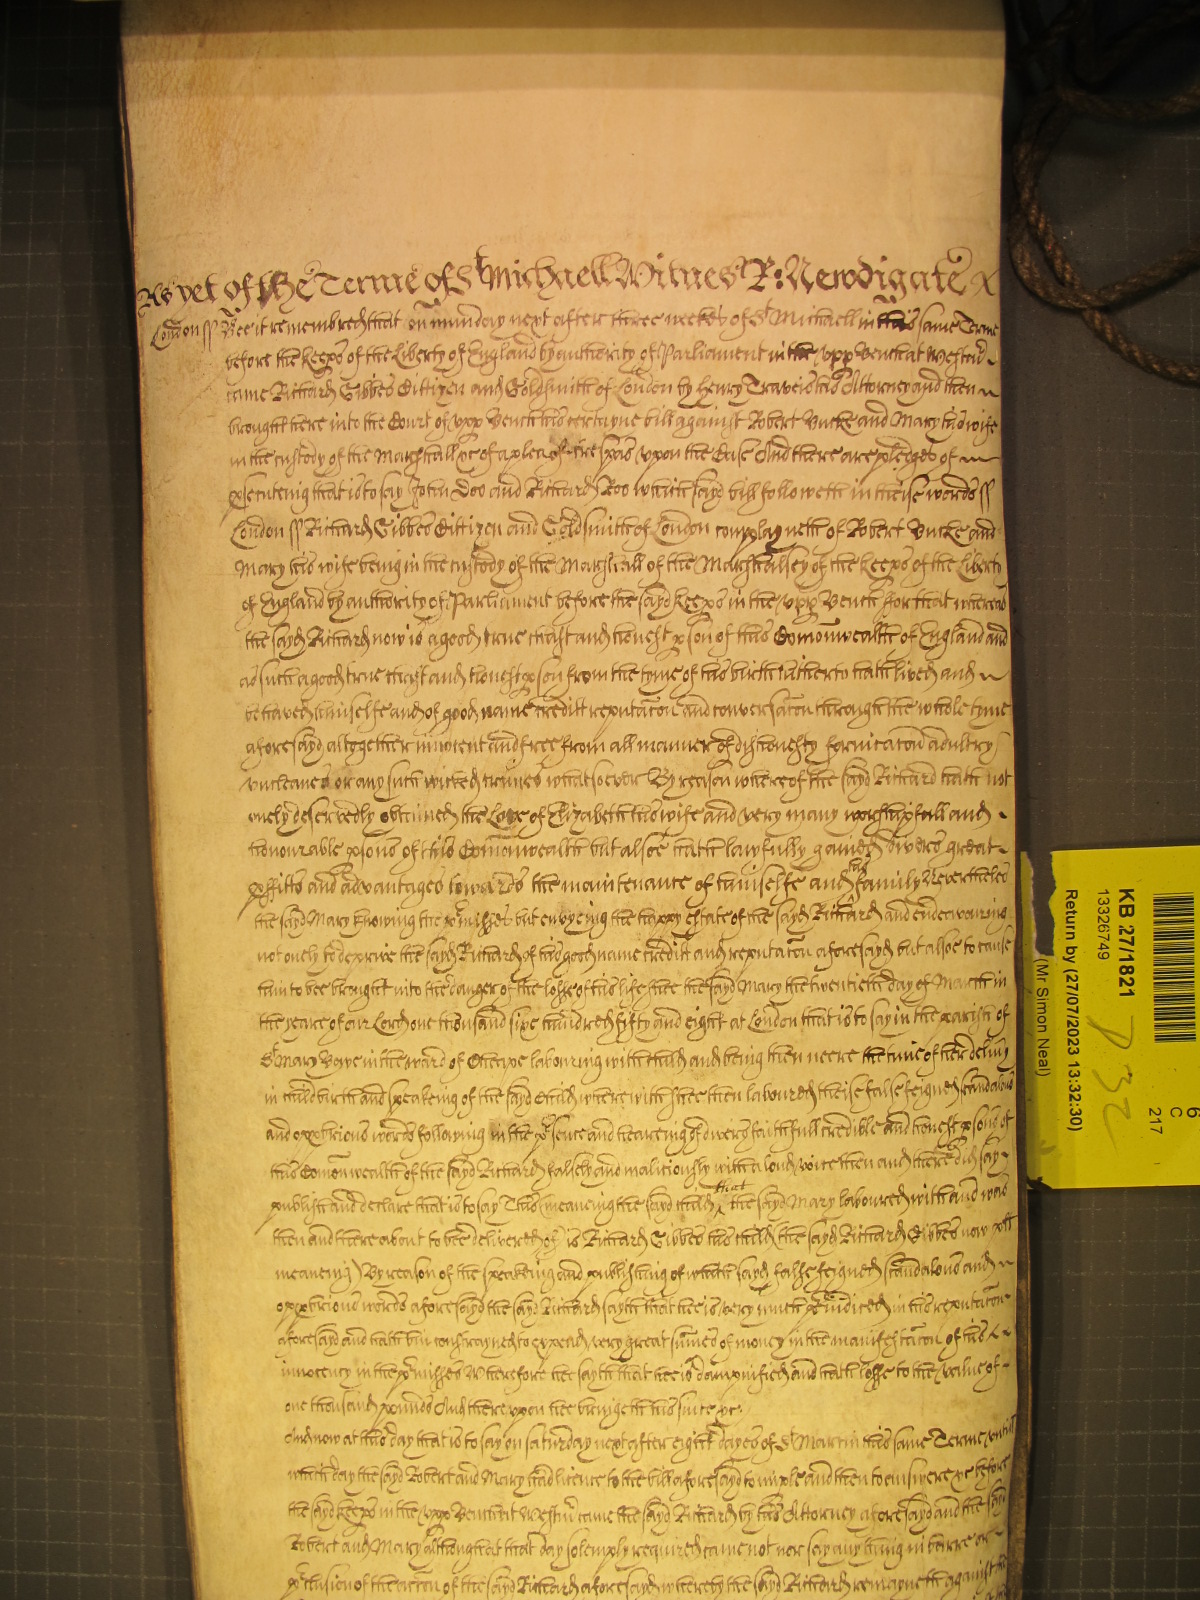 As yet of the Terme of St Michaell Witnes R: Newdigate
London ss Bee it remembred that on munday next after three weekes of St Michaell in this same Terme
before the Keeps of the Liberty of England by authority of Parliament in the upp Bench at Westm
came Richard Gibbes Cittizen and Goldsmith of London by Henry Travers his Attorney and then
brought here into the Court of upp Bench his certayne bill against Robert Bucke and Mary his wife
in the custody of the Marshall &c of a plea of trespas upon the Case And there are pledges of
psecuteing that is to say John Doo and Richard Roo which sayd bill followeth in theise words ss
London ss Richard Gibbes Cittizen and Goldsmith of London complayneth of Robert Bucke and
Mary his wife being in the custody of the Marshall of the Marshalsey of the Keeps of the Liberty
of England by authority of Parliament before the sayd Keeps in the upp Bench for that whereas
the sayd Richard now is a good true chast and honest pson of this Comonwealth of England and
as such a good true chast and honest pson from the tyme of his birth hitherto hath lived and
behaved himselfe and of good name creditt reputacon and conversacon through the whole tyme
aforesayd altogether innocent and free from all manner of dishonesty fornicacon adultry
uncleanes or any such wicked crimes whatsoever By reason whereof the sayd Richard hath not
onely deservedly obteined the Love of Elizabeth his wife and very many worshipfull and
honourable psons of this Comonwealth but alsoe hath lawfully gained divers great
pffitts and advantages towards the maintenance of himselfe and his family Neverthelesse
the sayd Mary knowing the pmisses but envyeing the happy estate of the sayd Richard and endeavouring
not onely to deprive the sayd Richard of his good name creditt and reputacon aforesayd but alsoe to cause
him to bee brought into the danger of the losse of his life shee the sayd Mary the twentieth day of March in
the yeare of our Lord one thousand sixe hundred fifty and eight at London that is to say in the parish of
St Mary Bowe in the ward of Cheape labouring with child and being then neere the time of her delivy
in childbirth and speakeing of the sayd Child wherewith shee then laboured theise false feigned scandalous
and opprobrious words following in the psence and heareing of divers faithfull credible and honest psons of
this Comonwealth of the sayd Richard falsely and malitiously with a loud voice then and there did say
publish and declare that is to say This (meaneing the sayd child that the sayd Mary laboured with and was
then and there about to bee delivered of) is Richard Gibbes his child (the sayd Richard Gibbes now plt
meaneing) By reason of the speakeing and publishing of which sayd false feigned scandalous and
opprobrious words aforesayd the sayd Richard sayth that hee is very much piudiced in his reputacon
aforesayd and hath bin constrayned to expend very great sumes of money in the manifestacon of his
innocency in the pmisses Wherefore hee sayth that hee is dampnified and hath losse to the value of
one thousand pounds And thereupon hee bringeth his suite &c
And now at this day that is to say on saturday next after eight dayes of St Martin this same Terme untill
which day the sayd Robert and Mary had licence to the bill aforesayd to imple and then to answere &c before
the sayd Keeps in the upp Bench at Westmr came the sayd Richard by his Attorney aforesayd and the sayd
Robert and Mary although at that day solemply required came not nor say any thing in barre or
pclusion of the accon of the sayd Richard aforesayd whereby the sayd Richard remayneth against the
KB 27/1821
13326749
Return by (27/07/2023 13:32:30)
(Mr Simon Neal)
6
C
217
P 32